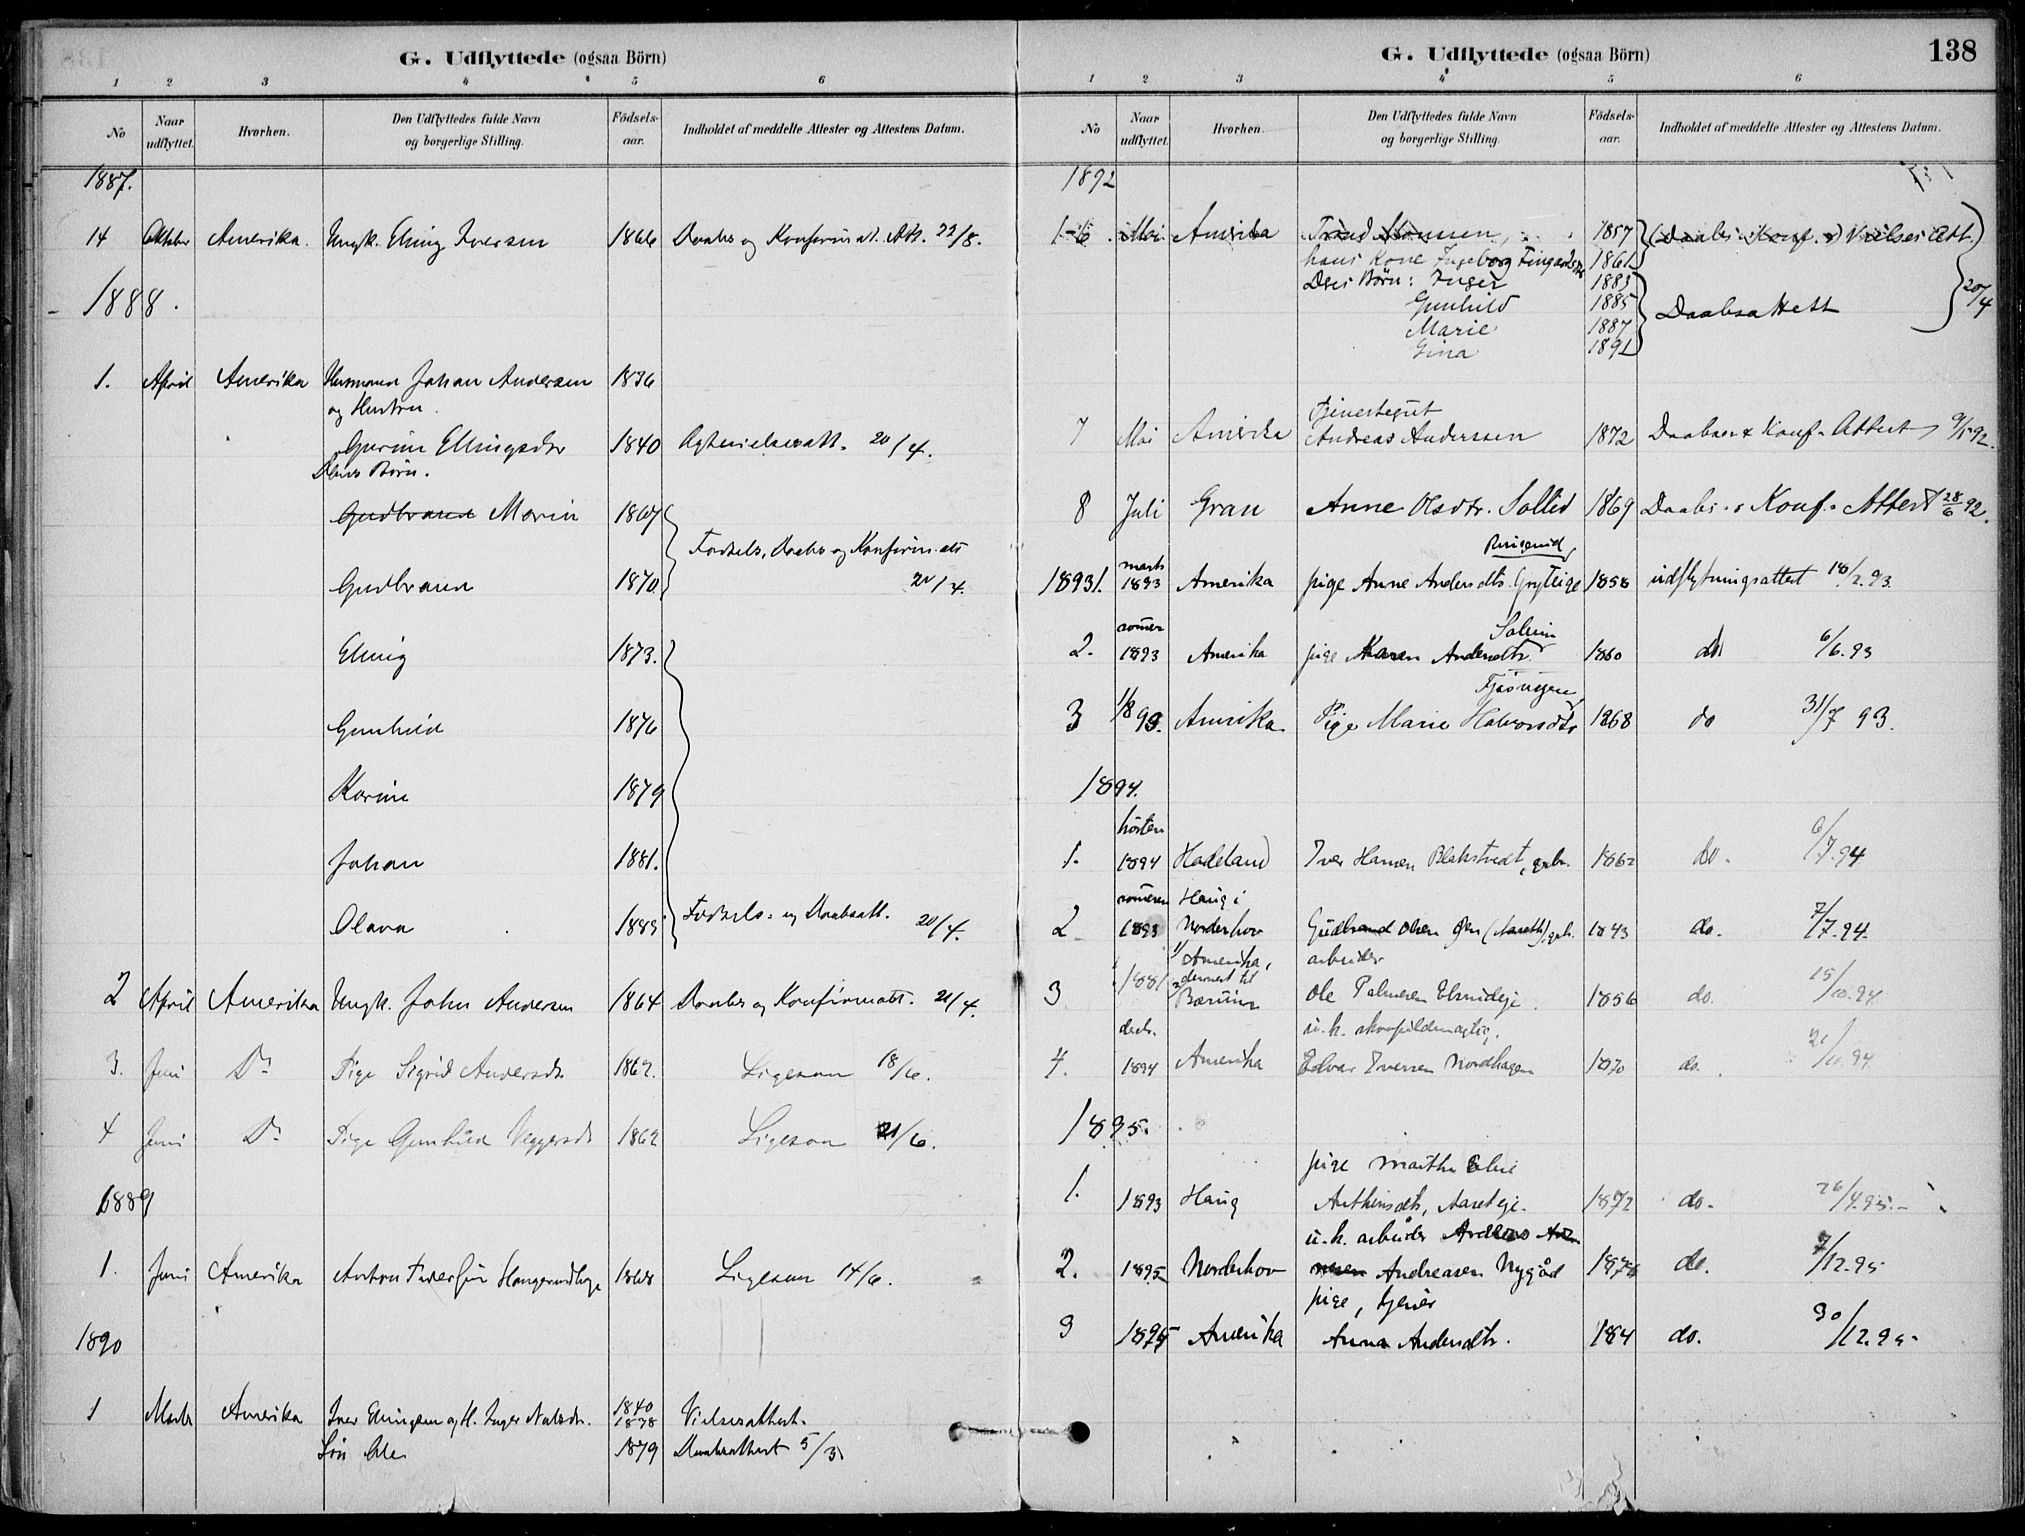 G. Udflyttede (ogsaa Börn)
1 2 3 4 5 6
No
Naar udflyttet.
Hvorhen.
Den Udflyttedes fulde Navn og borgerlige Stilling.
Fødsels-aar.
Indholdet af meddelte Attester og Attestens Datum.
1887.
14 Oktober Amerika. Ungk. Elling Iversen 1866 Daabs og Konfirmat. Att. 22/8.
1888.
1. April Amerika Husmand Johan Andersen 1836
og Hustru
Gurine Ellingsdtr 1840 Ægtevielsesatt. 20/4.
Deres Børn.
Gudbrand Marin 1867
Fødsels, Daabs og Konfirm. att
Gudbrand 1870 20/4.
Elling 1873.
Gunhild 1876
Karine 1879
Johan 1881.
Olava 1885 Fødsels- og Daabsatt. 20/4.
2 April Amerika Ungk. John Andersen 1864 Daabs og Konfirmatt. 21/4.
3. Juni Do Pige Sigrid Andersdt. 1862. Ligesaa 18/6.
4 Juni Do Pige Gunhild 1862 Ligesaa 21/6.
1889
1. Juni Amerika Anton 1868 Ligesaa 14/6.
1890
1 Marts Amerika Iver Ellingsen og H. Inger 1840
1838 Vielsesattest.
Søn Ole 1879 Daabsattest 5/3
G. Udflyttede (ogsaa Börn) 138
1 2 3 4 5 6
No
Naar udflyttet.
Hvorhen.
Den Udflyttedes fulde Navn og borgerlige Stilling.
Fødsels-aar.
Indholdet af meddelte Attester og Attestens Datum.
1892
1-6. Mai Amerika Trond Monssen, 1857 (Daabs- Konf. & Vielses Att.)
hans Kone Ingeborg 1861
Deres Børn: Inger 1883
Gunhild 1885 Daabsattest 20/4
Marie 1887
Gina 1891
Tjenestegut
7 Mai Amerika Andreas Anderssen 1872 Daabs & Konf. Attest 9/5 92.
8 Juli Gran Anne Olsdtr. Sollid 1869 Daabs- & Konf. Attest 28/6 92.
marts
1893 1. 1893 Amerika pige Anne Andersdtr. 1858 udflytningsattest 18/2.93.
2. 1893 Amerika pige Karen Andersdtr. 1860 do 6/6.93
3 1/8 93. Amerika Pige Marie Halvorsdtr 1868 do 31/7 93.
1894.
hösten
1. 1894 Hadeland Iver Hansen 1862 do. 6/7.94
Haug i
2. 1893 Norderhov Gudbrand Olsen 1843 do. 7/7.94.
Amerika, arbeider
dernest til
3 1881 Bærum Ole 1856 do. 15/10.94.
4. 1894 Amerika Edvar Iversen Nordhagen 1870 do.
1895.
pige Marthe
1. 1893 Haug 1872 do. 26/4.95.
u. k. arbeider
2. 1895 Norderhov Andreasen Nygård do. 7/12.95
pige,
3 1895 Amerika Anna Andersdtr. do. 30/12.95